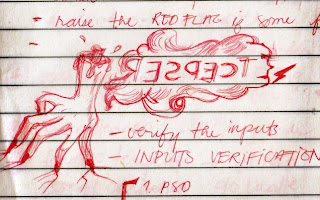 - raise the RED FLAG if some f
RESPECT
- verify the inputs
- INPUTS VERIFICATION
1. PSO